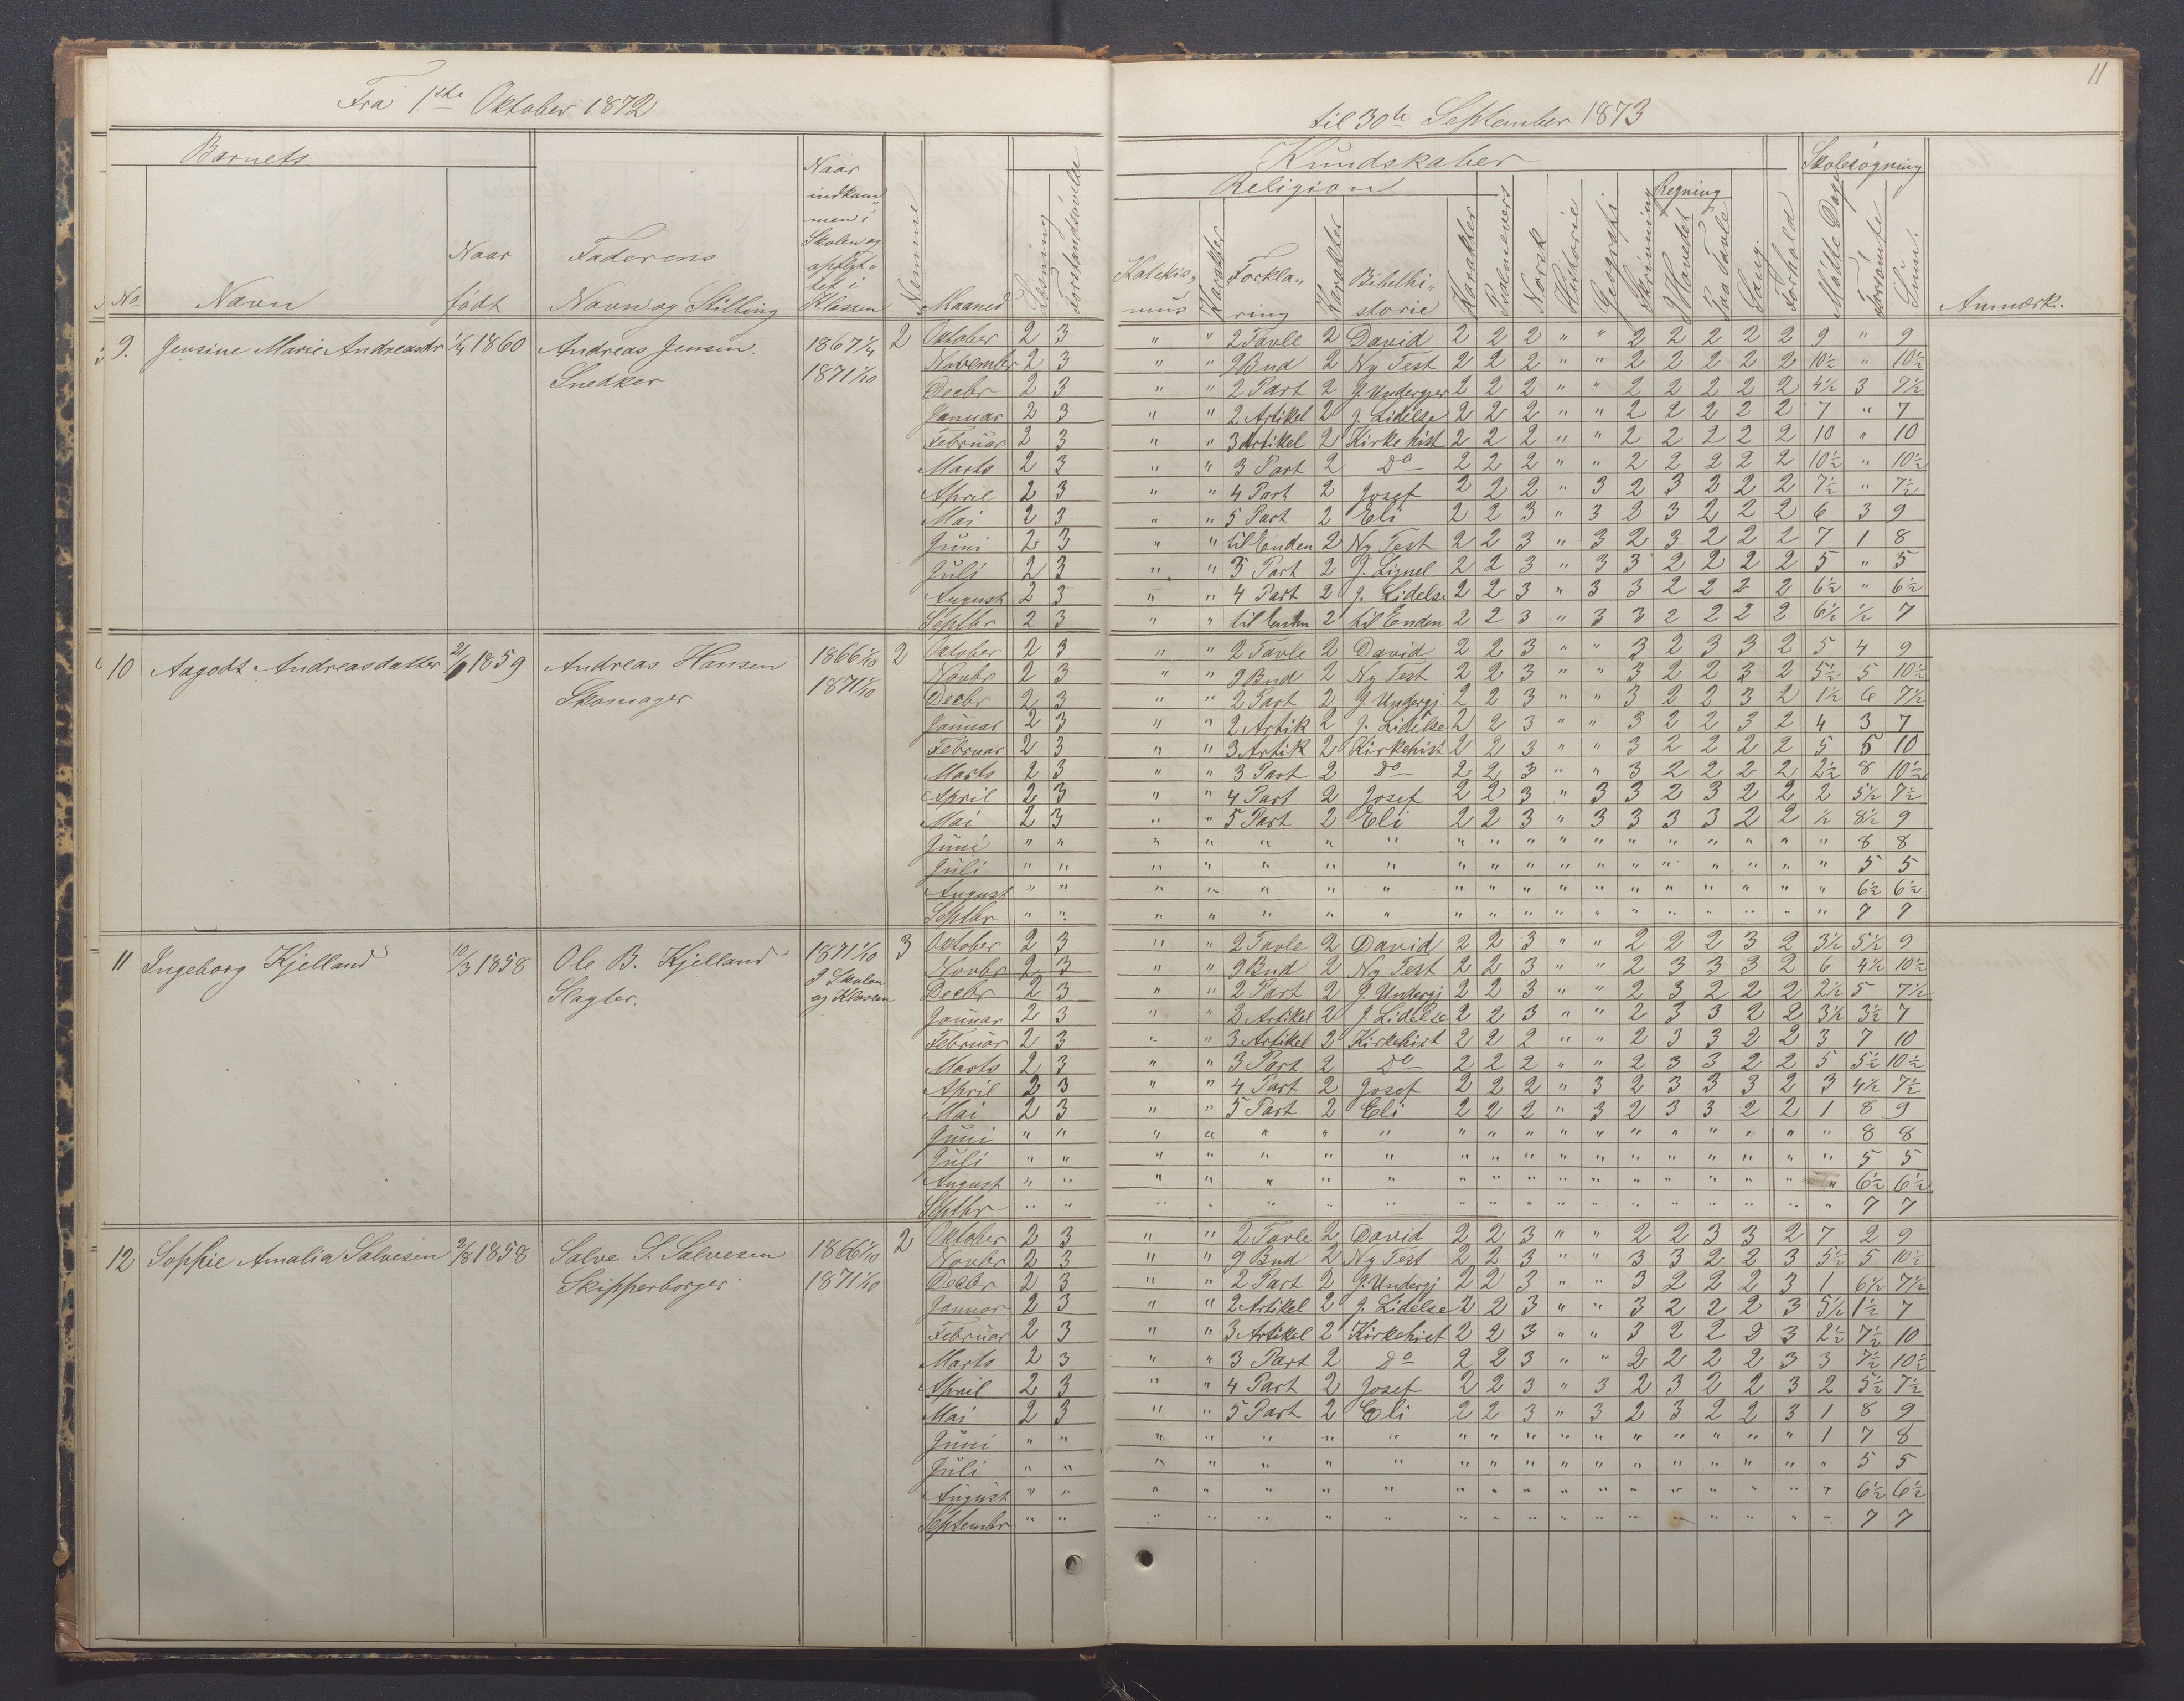 11
Fra 1ste Oktober 1872 til 30te September 1873
Barnets Kundskaber Skolesøgning
Religion Regning
No. Navn Naar født Faderens Navn og Stilling Naar indkommen i Skolen og opflyttet i Klassen Nemme Maaned Læsning Forstandsøvelse Katekismus Karakter Forklaring Karakter Bibelhistorie Karakter Psalmevers Norsk Historie Geografi Skrivning I Hovedet Paa Tavle Sang Forhold Mødte Dage Forsømte Sum. Anmærk.
9. Jensine Marie Andreasdr 1/4 1860 Andreas Jensen. 1867 1/4 2 Oktober 2 3 " " 2 Tavle 2 David 2 2 2 " " 2 2 2 2 2 9 " 9
Snedker 1871 1/10 Novembr 2 3 " " 9 Bud 2 Ny Test 2 2 2 " " 2 2 2 2 2 10½ " 10½
Decbr 2 3 " " 2 Part 2 J. Undergjer 2 2 2 " " 2 2 2 2 2 4½ 3 7½
Januar 2 3 " " 2 Artikel 2 J. Lidelse 2 2 2 " " 2 2 2 2 2 7 " 7
Februar 2 3 " " 3 Artikel 2 Kirke hist 2 2 2 " " 2 2 2 2 2 10 " 10
Marts 2 3 " " 3 Part 2 Do 2 2 2 " " 2 2 2 2 2 10½ " 10½
April 2 3 " " 4 Part 2 Josef 2 2 2 " 3 2 3 2 2 2 7½ " 7½
Mai 2 3 " " 5 Part 2 Eli 2 2 3 " 3 2 3 2 2 2 6 3 9
Juni 2 3 " " til Enden 2 Ny Test 2 2 3 " 3 2 3 2 2 2 7 1 8
Juli 2 3 " " 3 Part 2 J. Lignel 2 2 3 " 3 3 2 2 2 2 5 " 5
August 2 3 " " 4 Part 2 J. Lidelse 2 2 3 " 3 3 2 2 2 2 6½ " 6½
Septbr 2 3 " " til Enden 2 til Enden 2 2 3 " 3 3 2 2 2 2 6½ ½ 7
10 Aagodt Andreasdatter 21/9 1859 Andreas Hansen 1866 1/10 2 Oktober 2 3 " " 2 Tavle 2 David 2 2 3 " " 3 2 3 3 2 5 4 9
Skomager 1871 1/10 Novbr 2 3 " " 9 Bud 2 Ny Test 2 2 3 " " 3 2 2 3 2 5½ 5 10½
Decbr 2 3 " " 2 Part 2 J. Undergj. 2 2 3 " " 3 2 2 3 2 1½ 6 7½
Januar 2 3 " " 2 Artik 2 J. Lidelse 2 2 3 " " 3 2 2 3 2 4 3 7
Februar 2 3 " " 3 Artik 2 Kirkehist 2 2 3 " " 3 2 2 2 2 5 5 10
Marts 2 3 " " 3 Part 2 Do 2 2 3 " " 3 2 2 2 2 2½ 8 10½
April 2 3 " " 4 Part 2 Josef 2 2 3 " 3 3 2 3 2 2 2 5½ 7½
Mai 2 3 " " 5 Part 2 Eli 2 2 3 " 3 3 3 3 2 2 ½ 8½ 9
Juni " " " " " " " " " " " " " " " " " " 8 8
Juli " " " " " " " " " " " " " " " " " " 5 5
August " " " " " " " " " " " " " " " " " " 6½ 6½
Septbr " " " " " " " " " " " " " " " " " " 7 7
11 Ingeborg Kjelland 10/3 1858 Ole B. Kjelland 1871 1/10 3 Oktober 2 3 " " 2 Tavle 2 David 2 2 3 " " 2 2 2 3 2 3½ 5½ 9
Slagter. I Skolen og Klassen Novbr 2 3 " " 9 Bud 2 Ny Test 2 2 3 " " 2 3 3 3 2 6 4½ 10½
Decbr 2 3 " " 2 Part 2 J. Undergj 2 2 3 " " 2 3 2 2 2 2½ 5 7½
Januar 2 3 " " 2 Artikel 2 J. Lidelse 2 2 3 " " 2 3 3 2 2 3½ 3½ 7
Februar 2 3 " " 3 Artikel 2 Kirkehist 2 2 2 " " 2 3 3 2 2 3 7 10
Marts 2 3 " " 3 Part 2 Do 2 2 2 " " 2 3 3 2 2 5 5½ 10½
April 2 3 " " 4 Part 2 Josef 2 2 2 " 3 2 3 3 3 2 3 4½ 7½
Mai 2 3 " " 5 Part 2 Eli 2 2 2 " 3 2 3 3 2 2 1 8 9
Juni " " " " " " " " " " " " " " " " " " 8 8
Juli " " " " " " " " " " " " " " " " " " 5 5
August " " " " " " " " " " " " " " " " " " 6½ 6½
Septbr " " " " " " " " " " " " " " " " " " 7 7
12 Sophie Amalia Salvesen 2/8 1858 Salve S. Salvesen 1866 1/10 2 Oktober 2 3 " " 2 Tavle 2 David 2 2 3 " " 2 2 3 3 2 7 2 9
Skipperborger 1871 1/10 Novbr 2 3 " " 9 Bud 2 Ny Test 2 2 3 " " 3 3 2 2 3 5½ 5 10½
Decbr 2 3 " " 2 Part 2 J. Undergj 2 2 3 " " 3 2 2 2 3 1 6½ 7½
Januar 2 3 " " 2 Artikel 2 J. Lidelse 2 2 3 " " 3 2 2 2 3 5½ 1½ 7
Februar 2 3 " " 3 Artikel 2 Kirkehist 2 2 3 " " 3 2 2 2 3 2½ 7½ 10
Marts 2 3 " " 3 Part 2 Do 2 2 3 " " 2 2 2 2 3 3 7½ 10½
April 2 3 " " 4 Part 2 Josef 2 2 3 " 3 2 3 2 2 3 2 5½ 7½
Mai 2 3 " " 5 Part 2 Eli 2 2 3 " 3 2 3 2 2 3 1 8 9
Juni " " " " " " " " " " " " " " " " " 1 7 8
Juli " " " " " " " " " " " " " " " " " " 5 5
August " " " " " " " " " " " " " " " " " " 6½ 6½
Septembr " " " " " " " " " " " " " " " " " " 7 7